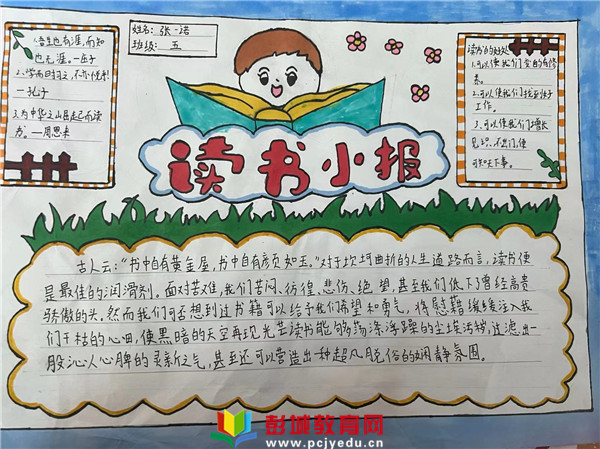 姓名:张一诺
班级:五
吾生也有涯,而知
也无涯。一庄子
2.学而时习之,不亦
一孔子
3.为中华之山居起而读
书。一周恩来
读书的好处
1.可以使我们变的有修
养。
2.可以使我们找到好
工作。
3.可以使我们增长
见识,不出门,便
可知天下事。
读书小报
古人云:“书中自有黄金屋,书中自有颜如玉。”对于坎坷曲折的人生道路而言,读书便
是最佳的润滑剂。面对苦难,我们苦闷、彷徨、悲伤、绝望,甚至我们低下了曾经高贵
骄傲的头。然而我们可否想到过书籍可以给予我们希望和勇气,将慰藉缓缓注入我
们干枯的心田,使黑暗的天空再现光芒读书能够荡涤浮躁的尘埃污秽,过滤出一
股沁人心脾的灵新之气,甚至还可以营造出一种超凡脱俗的娴静氛围。
彭城教育网
www.pcjyedu.cn